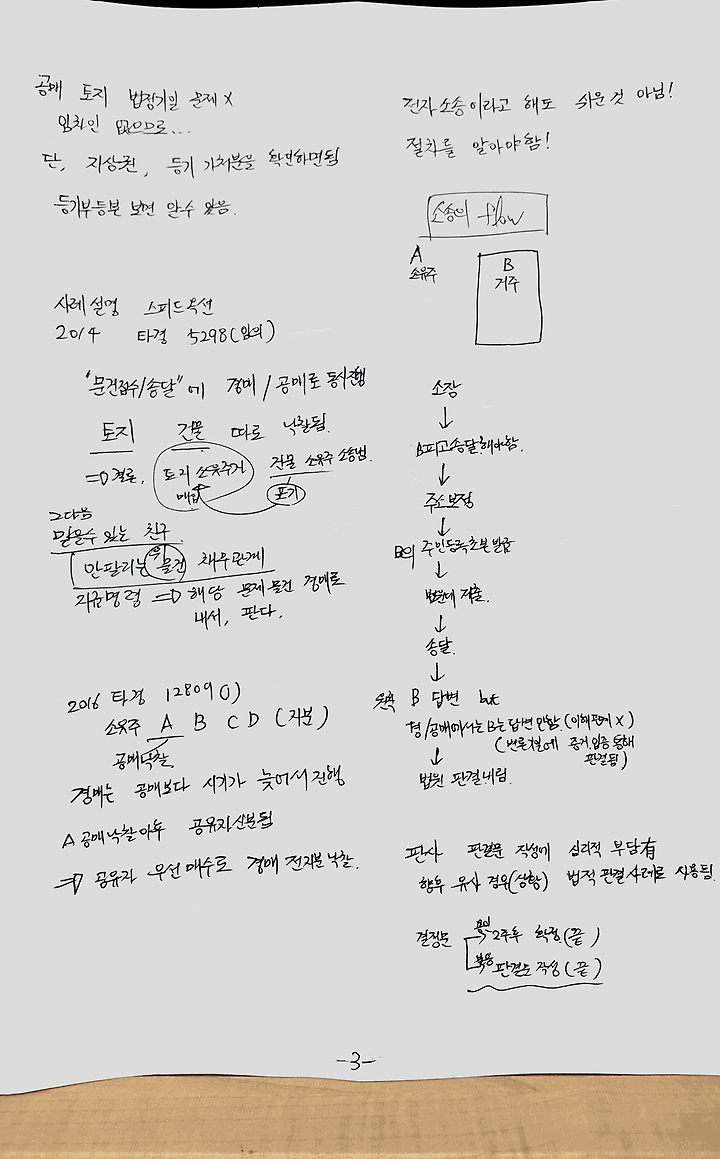 공매 토지 법정기일 문제 X
임차인 없으므로...
단, 지상권, 등기 가처분을 확인하면됨
등기부등본 보면 알수 있음.
사례설명 스피드옥션
2014 타경 5298(임의)
"문건접수/송달"에 경매/공매로 동시진행
토지 건물 따로 낙찰됨.
=> 결론, 토지 소유주가 건물 소유주 소송법.
매입 포기
그다음
믿을수 있는 친구
안팔리는 물건 채무관계
지급명령 => 해당 문제 물건 경매로
내서, 판다.
2016 타경 12809()
소유주 A B C D (지분)
공매낙찰
경매는 공매보다 시기가 늦어서 진행
A 공매낙찰이후 공유자신분됨
=> 공유자 우선매수로 경매 전지분 낙찰.
전자소송이라고 해도 쉬운것 아님!
절차를 알아야함!
소송의 flow
A
소유주
B
거주
소장
↓
B피고송달해야함.
↓
주소보정
↓
B의 주민등록초본발급
↓
법원에 제출.
↓
송달.
↓
원래 B 답변 but
경/공매에서는 B는 답변안함. (이해관계 X)
(변론기일에 증거입증통해
판결됨)
↓
법원 판결내림.
판사 판결문 작성에 심리적 부담有
향후 유사 경우(상황) 법적 판결사례로 사용됨.
결정문 동의 2주후 확정(끝)
불응 판결문 작성(끝)
-3-